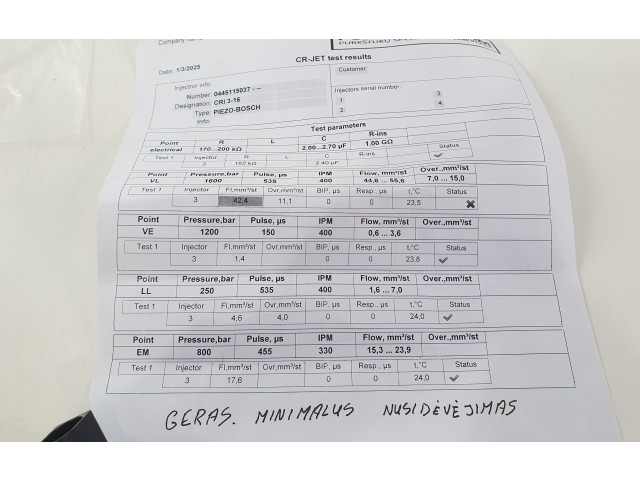 Company name
CR-JET test results
Date: 1/3/2025
Customer:
Injector info
Number: 0445115037 - --
Designation: CRI 3-16
Type: PIEZO-BOSCH
Info:
Injectors serial number:
1 3
2 4
Test parameters
Point R L C R-ins
electrical 170...200 kΩ 2.00...2.70 µF 1.00 GΩ
Test 1 Injector R L C R-ins Status
3 182 kΩ 2.40 µF
Point Pressure,bar Pulse, µs IPM Flow, mm³/st Over.,mm³/st
VL 1600 535 400 44,6 ... 55,6 7,0 ... 15,0
Test 1 Injector Fl,mm³/st Ovr,mm³/st BIP, µs Resp., µs t,°C Status
3 42,4 11,1 0 0 23,5
Point Pressure,bar Pulse, µs IPM Flow, mm³/st Over.,mm³/st
VE 1200 150 400 0,6 ... 3,6
Test 1 Injector Fl,mm³/st Ovr,mm³/st BIP, µs Resp., µs t,°C Status
3 1,4 0 0 23,8
Point Pressure,bar Pulse, µs IPM Flow, mm³/st Over.,mm³/st
LL 250 535 400 1,6 ... 7,0
Test 1 Injector Fl,mm³/st Ovr,mm³/st BIP, µs Resp., µs t,°C Status
3 4,6 4,0 0 0 24,0
Point Pressure,bar Pulse, µs IPM Flow, mm³/st Over.,mm³/st
EM 800 455 330 15,3 ... 23,9
Test 1 Injector Fl,mm³/st Ovr,mm³/st BIP, µs Resp., µs t,°C Status
3 17,6 0 0 24,0
GERAS. MINIMALUS NUSIDĖVĖJIMAS